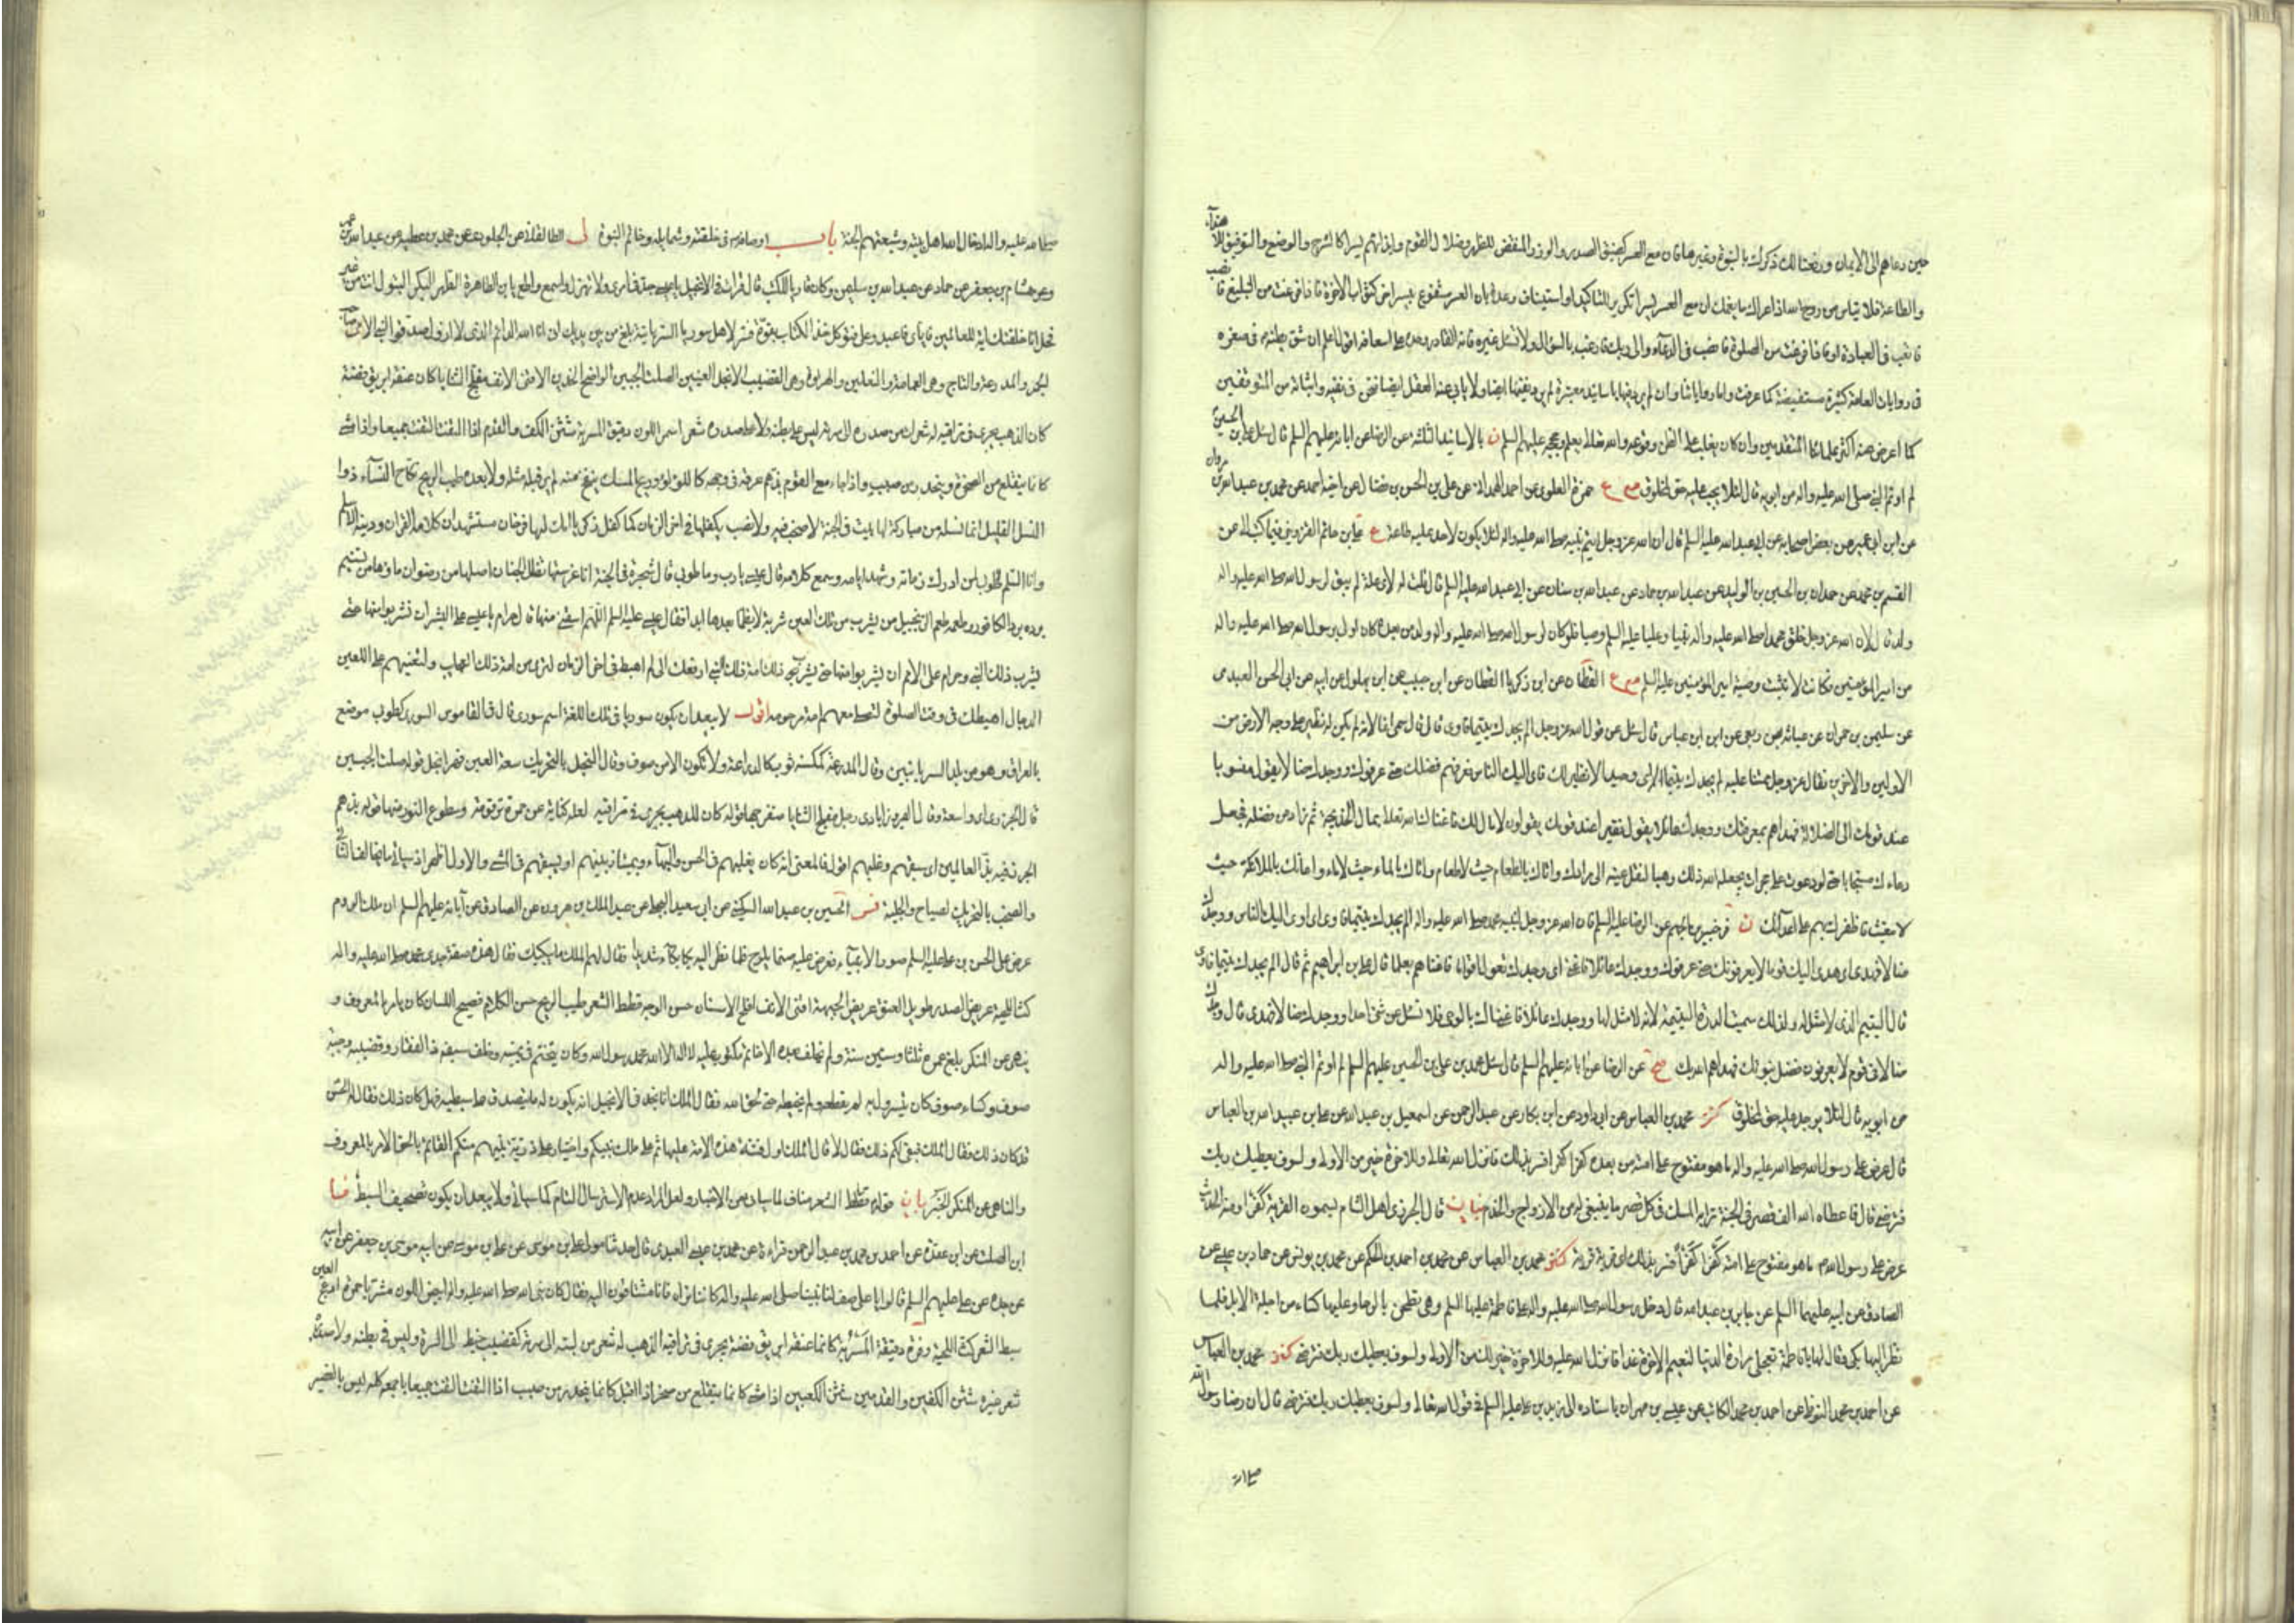 حين دعاهم الى الايمان ورفعنا لك ذكرك بالنبوة وغيرها فان مع العسر كضيق الصدر والوزر المنقض للظهر وضلال القوم وايذائهم يسرا كالشرح والوضع والتوفيق للاهتداء
والطاعة فلا تياس من روح الله اذا عراك ما يغمك ان مع العسر يسرا تكرير للتاكيد او استيناف وعده بان العسر مشفوع بيسر اخر كثواب الاخرة فاذا فرغت من التبليغ فانصب
فاتعب في العبادة او فاذا فرغت من الصلوة فانصب في الدعاء والى ربك فارغب بالسؤال ولا تسئل غيره فانه القادر وحده على اسعافه اقول اعلم ان شق بطنه في صغره
في روايات العامة كثيرة مستفيضة كما عرفت واما رواياتنا وان لم يرد فيها باسانيد معتبرة لم يرد نفيها ايضا ولا يابى عنه العقل ايضا فنحن في نفيه واثباته من المتوقفين
كما اعرض عنه اكثر علمائنا المتقدمين وان كان يغلب على الظن وقوعه والله تعالى يعلم وحججه عليهم السلم ن بالاسانيد الثلثة عن الرضا عن ابائه عليهم السلم قال سئل علي بن الحسين
لم اوتم النبي صلى الله عليه واله من ابويه قال لئلا يجب عليه حق لمخلوق مع ع حمزة العلوي عن احمد الهمداني عن علي بن الحسن بن فضال عن اخيه احمد عن محمد بن عبد الله بن مروان
عن ابن ابي عمير عن بعض اصحابه عن ابي عبد الله عليه السلم قال ان الله عز وجل ايتم نبيه صلى الله عليه واله لئلا يكون لاحد عليه طاعة ع علي بن حاتم القزويني فيما كتب الي عن
القسم بن محمد عن حمدان بن الحسين بن الوليد عن عبد الله بن حماد عن عبد الله بن سنان عن ابي عبد الله عليه السلم قال قلت له لاي علة لم يبق لرسول الله صلى الله عليه واله
ولد قال لان الله عز وجل خلق محمدا صلى الله عليه واله نبيا وعليا عليه السلم وصيا فلو كان لرسول الله صلى الله عليه واله ولد من بعده كان اولى برسول الله صلى الله عليه واله
من امير المؤمنين فكانت لا تثبت وصية امير المؤمنين عليه السلم مع ع القطان عن ابن زكريا القطان عن ابن حبيب عن ابن بهلول عن ابيه عن ابي الحسن العبدي
عن سليمن بن مهران عن عباية بن ربعي عن ابن عباس قال سئل عن قول الله عز وجل الم يجدك يتيما فاوى قال انما سمي يتيما لانه لم يكن له نظير على وجه الارض من
الاولين والاخرين فقال عز وجل ممتنا عليه الم يجدك يتيما اي وحيدا لا نظير لك فاوى اليك الناس وعرفهم فضلك حتى عرفوك ووجدك ضالا يقول منسوبا
عند قومك الى الضلالة فهداهم بمعرفتك ووجدك عائلا يقول فقيرا عند قومك يقولون لا مال لك فاغناك الله تعالى بمال خديجة ثم زادك من فضله فجعل
دعاءك مستجابا حتى لو دعوت على حجر ان يجعله الله لك ذهبا لنقل عينه الى مرادك واتاك بالطعام حيث لا طعام واتاك بالماء حيث لا ماء واعانك بالملائكة حيث
لا مغيث فاظفرك بهم على اعدائك ن في خبر ابن الجهم عن الرضا عليه السلم قال الله عز وجل لنبيه محمد صلى الله عليه واله الم يجدك يتيما فاوى اي اوى اليك الناس ووجدك
ضالا فهدى اي هدى اليك قوما لا يعرفونك حتى عرفوك ووجدك عائلا فاغنى اي وجدك تعول اقواما فاغناهم بعلمك قال علي بن ابراهيم ثم قال الم يجدك يتيما فاوى
قال اليتيم الذي لا مثل له ولذلك سميت الدرة اليتيمة لانه لا مثل لها ووجدك عائلا فاغناك بالوحي فلا تسئل عن شيء احدا ووجدك ضالا فهدى قال وجدك
ضالا في قوم لا يعرفون فضل نبوتك فهداهم الله بك صح عن الرضا عن ابائه عليهم السلم قال سئل محمد بن علي بن الحسين عليهم السلم لم اوتم النبي صلى الله عليه واله
من ابويه قال لئلا يوجد عليه حق لمخلوق كنز محمد بن العباس عن ابي داود عن ابن بكار عن عبد الرحمن عن اسمعيل بن عبد الله عن علي بن عبد الله بن العباس
قال عرض على رسول الله صلى الله عليه واله ما هو مفتوح على امته من بعده كفرا كفرا فسر بذلك فانزل الله تعالى وللاخرة خير لك من الاولى ولسوف يعطيك ربك
فترضى قال فاعطاه الله الف قصر في الجنة ترابه المسك في كل قصر ما ينبغي له من الازواج والخدم بيان قال الجزري اهل الشام يسمون القرية كفرا ومنه الحديث
عرض على رسول الله ما هو مفتوح على امته كفرا كفرا فسر بذلك اي قرية قرية كنز محمد بن العباس عن محمد بن احمد بن الحكم عن محمد بن يونس عن حماد بن عيسى عن
الصادق عن ابيه عليهما السلم عن جابر بن عبد الله قال دخل رسول الله صلى الله عليه واله على فاطمة عليها السلم وهي تطحن بالرحا وعليها كساء من اجلة الابل فلما
نظر اليها بكى وقال لها يا فاطمة تعجلي مرارة الدنيا لنعيم الاخرة غدا فانزل الله عليه وللاخرة خير لك من الاولى ولسوف يعطيك ربك فترضى كنز محمد بن العباس
عن احمد بن محمد النوفلي عن احمد بن محمد الكاتب عن عيسى بن مهران باسناده الى زيد بن علي عليه السلم في قول الله تعالى ولسوف يعطيك ربك فترضى قال ان رضا رسول الله
صلى الله
صلى الله عليه واله ادخال الله اهل بيته وشيعتهم الجنة باب اوصافه في خلقته وشمايله وخاتم النبوة لي الطالقاني عن الجلودي عن محمد بن عطية عن عبد الله بن عمرو
وعن هشام بن جعفر عن حماد عن عبد الله بن سليمن وكان قاريا للكتب قال قرات في الانجيل يا عيسى جد في امري ولا تهزل واسمع واطع يا بن الطاهرة الطهر البكر البتول انت من غير
فحل انا خلقتك اية للعالمين فاياي فاعبد وعلي فتوكل خذ الكتاب بقوة فسر لاهل سوريا السريانية بلغ من بين يديك اني انا الله الدائم الذي لا ازول صدقوا النبي الامي صاحب
الجمل والمدرعة والتاج وهي العمامة والنعلين والهراوة وهي القضيب الانجل العينين الصلت الجبين الواضح الخدين الاقنى الانف مفلج الثنايا كان عنقه ابريق فضة
كان الذهب يجري في تراقيه له شعرات من صدره الى سرته ليس على بطنه ولا على صدره شعر اسمر اللون دقيق المسربة شثن الكف والقدم اذا التفت التفت جميعا واذا مشى
كانما يتقلع من الصخرة وينحدر من صبب واذا جاء مع القوم بذهم عرقه في وجهه كاللؤلؤ وريح المسك ينفح منه لم ير قبله مثله ولا بعده طيب الريح نكاح النساء ذوا
النسل القليل انما نسله من مباركة لها بيت في الجنة لا صخب فيه ولا نصب يكفلها في اخر الزمان كما كفل زكريا امك لها فرخان مستشهدان كلامه القران ودينه الاسلم
وانا السلم طوبى لمن ادرك زمانه وشهد ايامه وسمع كلامه قال عيسى يا رب وما طوبى قال شجرة في الجنة انا غرستها تظل الجنان اصلها من رضوان ماؤها من تسنيم
برده برد الكافور وطعمه طعم الزنجبيل من يشرب من تلك العين شربة لا يظما بعدها ابدا فقال عيسى عليه السلم اللهم اسقني منها قال حرام يا عيسى على البشر ان يشربوا منها حتى
يشرب ذلك النبي وحرام على الامم ان يشربوا منها حتى يشرب امة ذلك النبي ارفعك الي ثم اهبطك في اخر الزمان لترى من امة ذلك النبي العجايب ولتعينهم على اللعين
الدجال اهبطك في وقت الصلوة لتصلي معهم انهم امة مرحومة اقول لا يبعد ان يكون سوريا في تلك اللغة اسم سورى قال في القاموس السورى كطوبى موضع
بالعراق وهو من بلد السريانيين وقال المدرعة كمكنسة ثوب كالدراعة ولا تكون الا من صوف وقال النجل بالتحريك سعة العين فهو انجل قوله صلت الجبين
قال الجزري اي واسعه وقال الفيروزابادي رجل مفلج الثنايا منفرجها قوله كان الذهب يجري في تراقيه لعله كناية عن حمرة ترقوته وسطوع النور منها قوله بذهم
الجزري فيه بذ العالمين اي سبقهم وغلبهم اقول فالمعنى انه كان يغلبهم في الحسن والبهاء ويمتاز بينهم او يسبقهم في المشي والاول اظهر اذ سياتي ما يخالف الثاني
والصخب بالتحريك الصياح والجلبة فس الحسين بن عبد الله السكيني عن ابي سعيد البجلي عن عبد الملك بن هرون عن الصادق عن آبائه عليهم السلم ان ملك الروم
عرض على الحسن بن علي عليه السلم صور الانبياء فعرض عليه صنما يلوح فلما نظر اليه بكى بكاء شديدا فقال له الملك ما يبكيك فقال هذه صفة جدي محمد صلى الله عليه واله
كث اللحية عريض الصدر طويل العنق عريض الجبهة اقنى الانف افلج الاسنان حسن الوجه قطط الشعر طيب الريح حسن الكلام فصيح اللسان كان يامر بالمعروف و
ينهى عن المنكر بلغ عمره ثلثا وستين سنة ولم يخلف بعده الا خاتم مكتوب عليه لا اله الا الله محمد رسول الله وكان يتختم في يمينه وخلف سيفه ذا الفقار وقضيبه وجبة
صوف وكساء صوف كان يتسرول به لم يقطعه ولم يخيطه حتى لحق بالله فقال الملك انا نجد في الانجيل انه يكون له ما يتصدق على سبطيه فهل كان ذلك فقال له الحسن
قد كان ذلك فقال الملك فبقي لكم ذلك فقال لا قال الملك اول فتنة هذه الامة عليها ثم على ملك نبيكم واختيارهم على ذرية نبيهم منكم القائم بالحق الامر بالمعروف
والناهي عن المنكر الخبر بيان قوله قطط الشعر مناف لما سياتي من الاخبار ولعل المراد عدم الاسترسال التام كما سياتي ولا يبعد ان يكون تصحيف السبط ما
ابن الصلت عن ابن عقدة عن احمد بن محمد بن عبد الرحمن قراءة عن محمد بن عيسى العبيدي قال حدثنا مولى علي بن موسى عن علي بن موسى عن ابيه موسى بن جعفر عن ابيه
عن جده عن علي عليهم السلم قالوا يا علي صف لنا نبينا صلى الله عليه واله كاننا نراه فانا مشتاقون اليه فقال كان نبي الله صلى الله عليه واله ابيض اللون مشربا حمرة ادعج العين
سبط الشعر كث اللحية ذا وفرة دقيق المسربة كانما عنقه ابريق فضة يجري في تراقيه الذهب له شعر من لبته الى سرته كقضيب خيط الى السرة وليس في بطنه ولا صدره
شعر غيره شثن الكفين والقدمين شثن الكعبين اذا مشى كانما يتقلع من صخر اذا اقبل كانما ينحدر من صبب اذا التفت التفت جميعا باجمعه كله ليس بالقصير